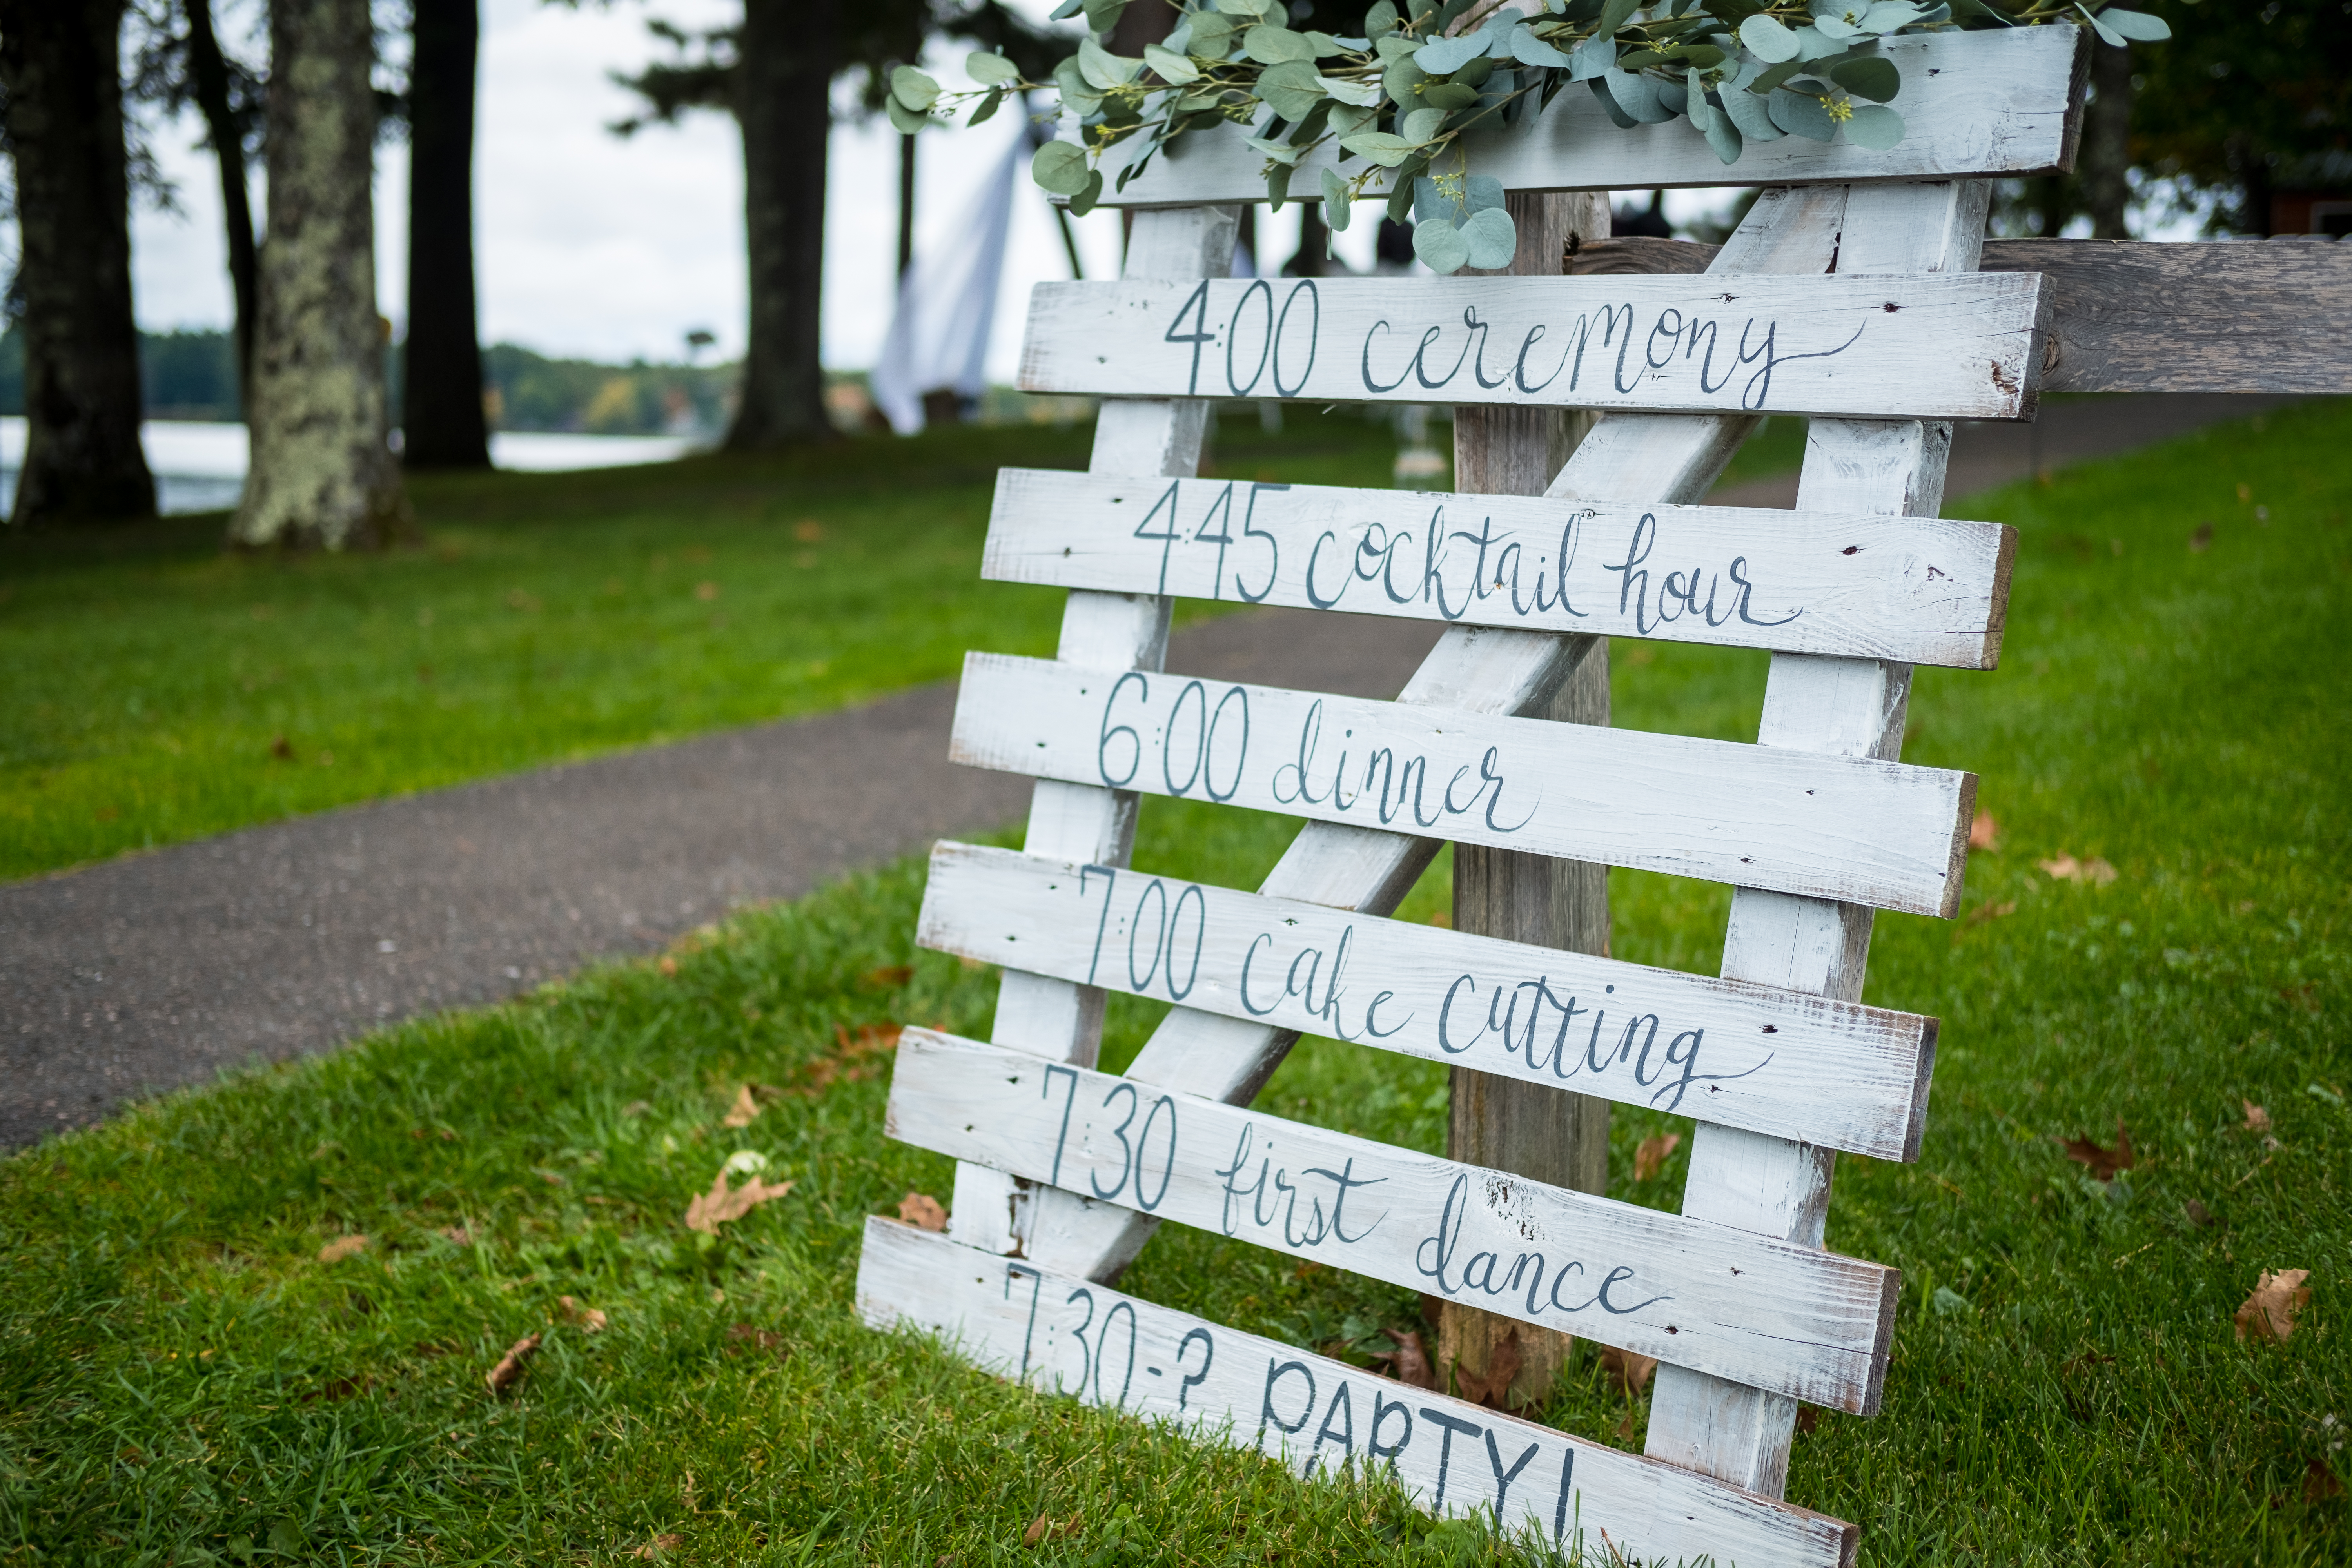 4:00 ceremony
4:45 cocktail hour
6:00 dinner
7:00 cake cutting
7:30 first dance
7:30-? PARTY!